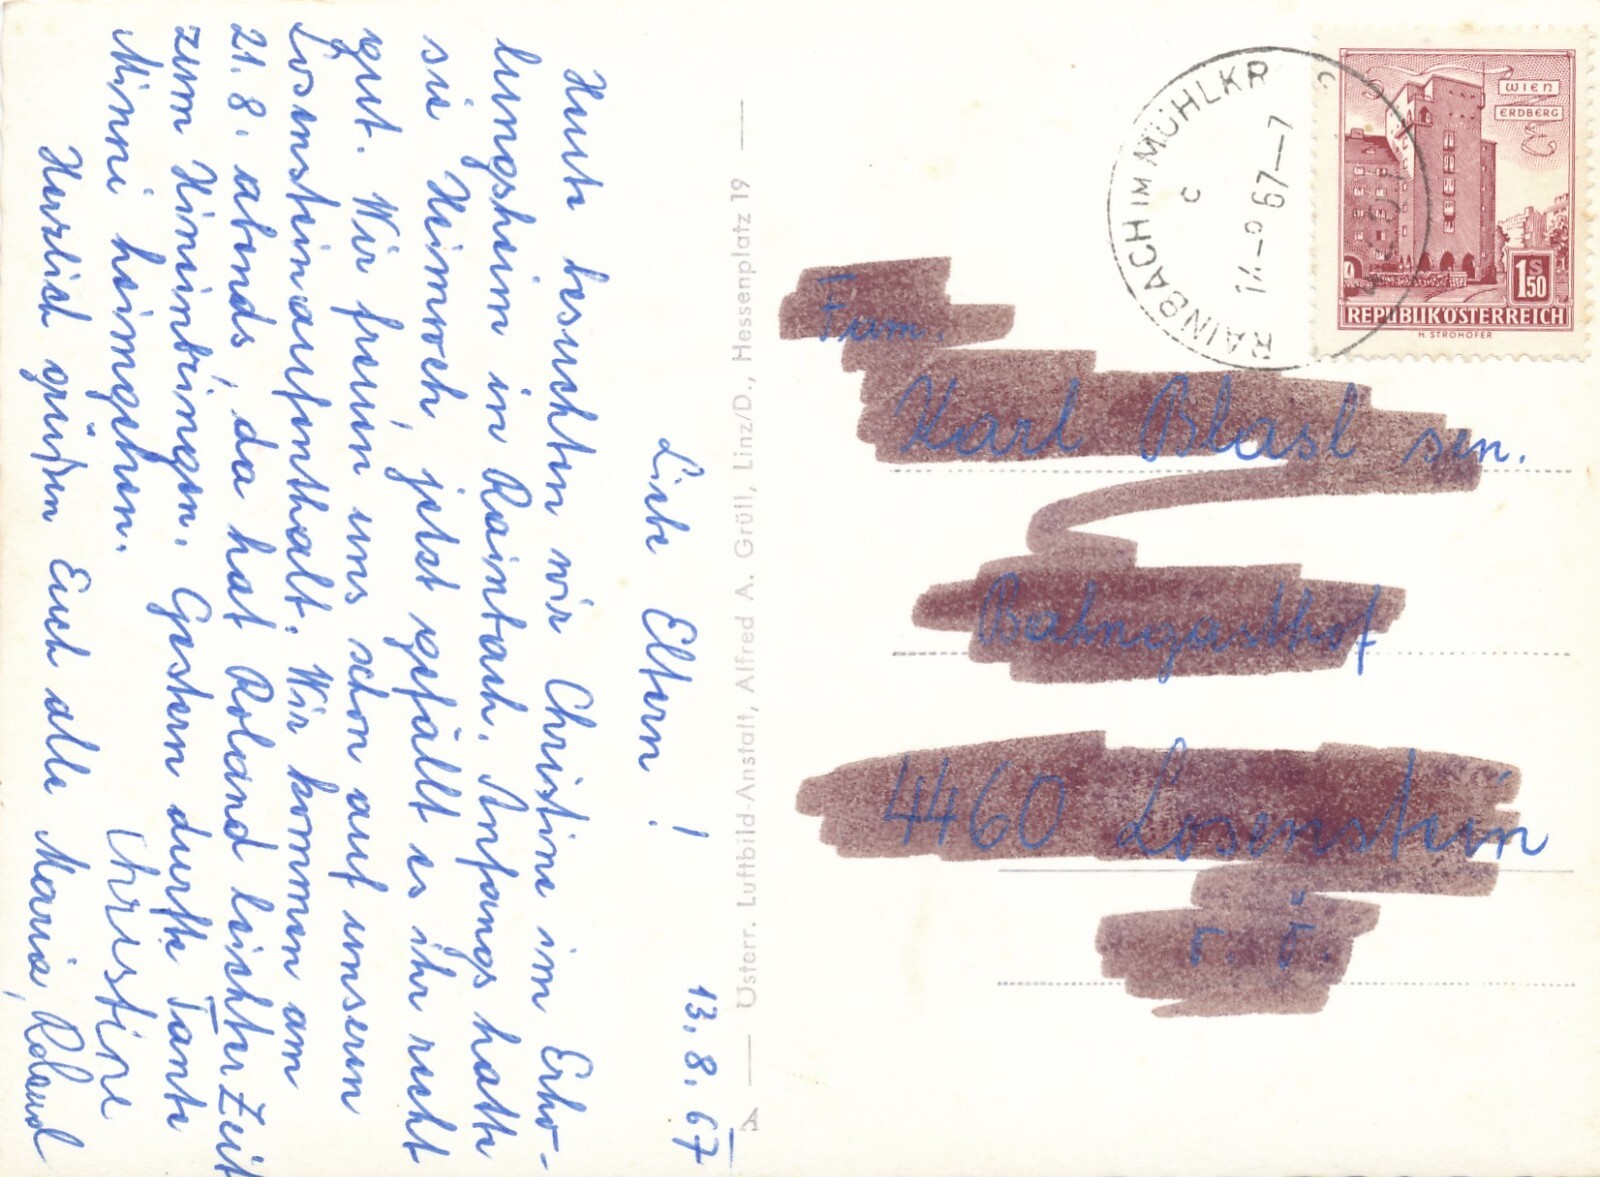 13. 8. 67
Liebe Eltern!
Heute besuchten wir Christine im Erho-
lungsheim in Rainbach. Anfangs hatte
sie Heimweh, jetzt gefällt es ihr recht
gut. Wir freuen uns schon auf unseren
Losensteinaufenthalt. Wir kommen am
21. 8. abends, da hat Roland leichter Zeit
zum Hineinbringen. Gestern durfte Tante
Minni heimgehen.
Christine
Herzlich grüßen Euch alle Maria, Roland
A — Österr. Luftbild-Anstalt, Alfred A. Grüll, Linz/D., Hessenplatz 19 —
RAINBACH IM MÜHLKR
c
67—7
WIEN
ERDBERG
1 S 50
REPUBLIK ÖSTERREICH
H. STROHOFER
Fam.
Karl Blasl sen.
Bahngasthof
4460 Losenstein